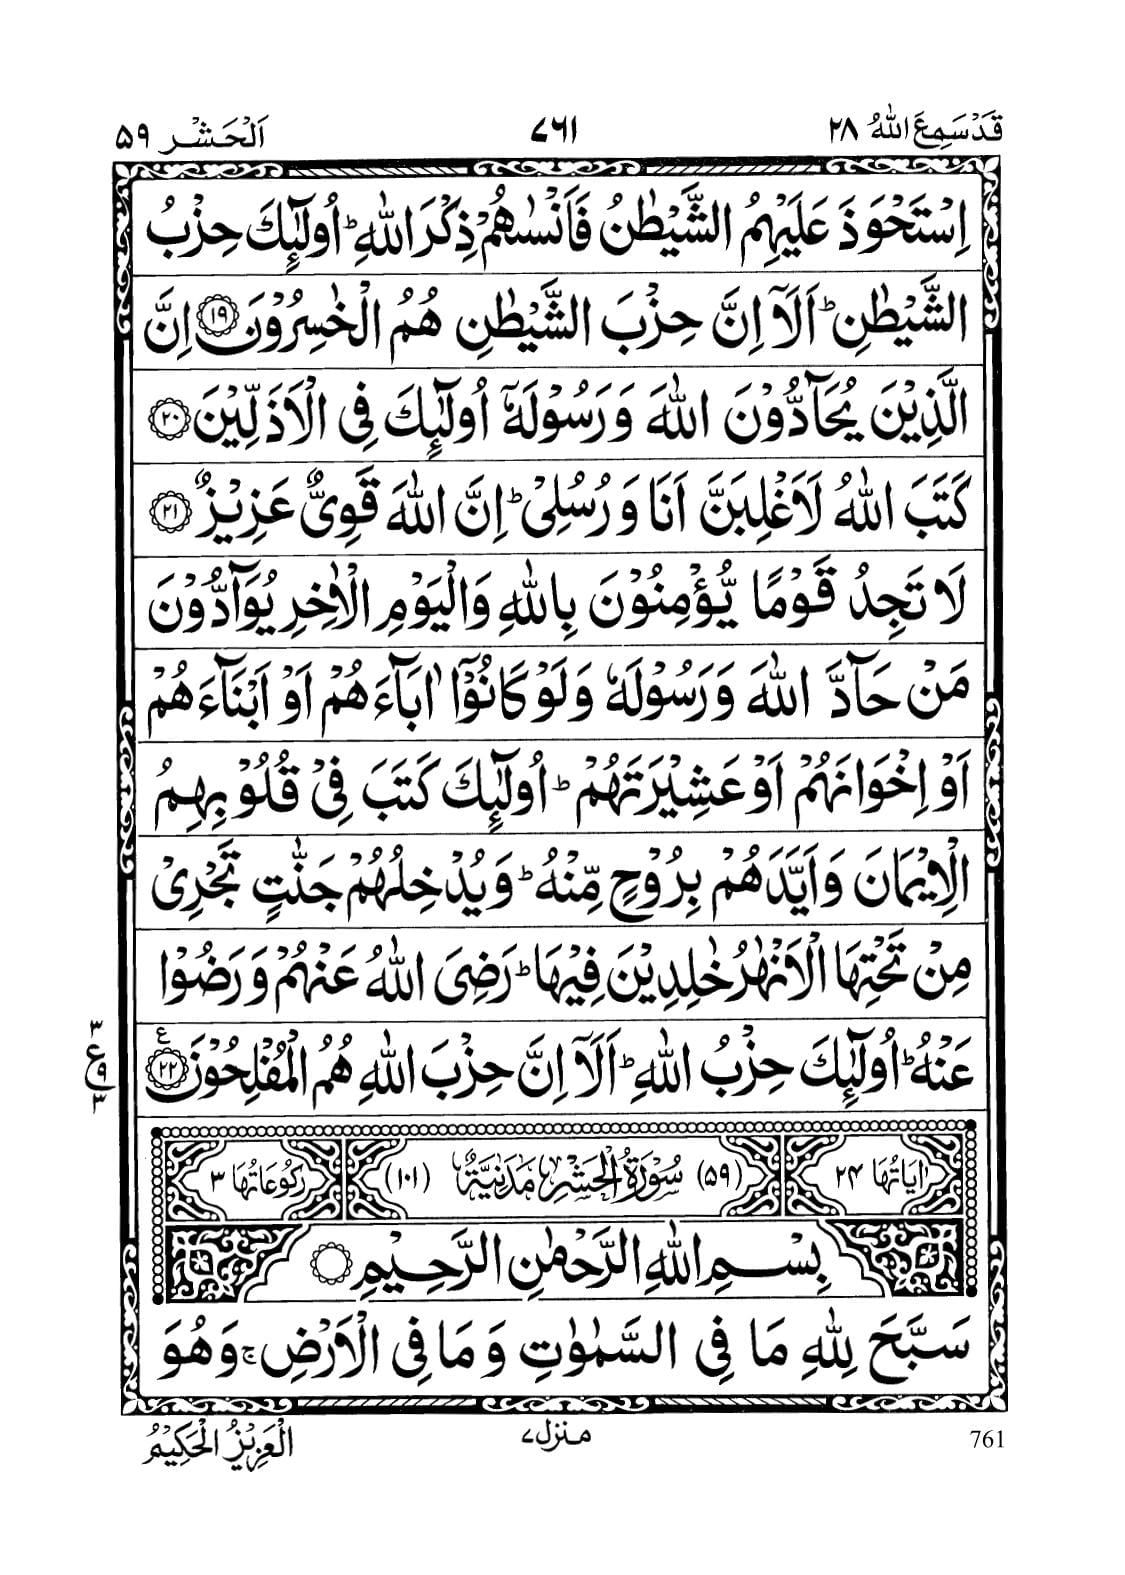 قَدْ سَمِعَ اللّٰهُ ۲۸ ۷۶۱ اَلْحَشْر ۵۹
اِسْتَحْوَذَ عَلَيْهِمُ الشَّيْطٰنُ فَاَنْسٰىهُمْ ذِكْرَ اللّٰهِ ؕ اُولٰٓئِكَ حِزْبُ
الشَّيْطٰنِ ؕ اَلَاۤ اِنَّ حِزْبَ الشَّيْطٰنِ هُمُ الْخٰسِرُوْنَ ۱۹ اِنَّ
الَّذِيْنَ يُحَآدُّوْنَ اللّٰهَ وَرَسُوْلَهٗۤ اُولٰٓئِكَ فِى الْاَذَلِّيْنَ ۲۰
كَتَبَ اللّٰهُ لَاَغْلِبَنَّ اَنَا وَرُسُلِىْ ؕ اِنَّ اللّٰهَ قَوِىٌّ عَزِيْزٌ ۲۱
لَا تَجِدُ قَوْمًا يُّؤْمِنُوْنَ بِاللّٰهِ وَالْيَوْمِ الْاٰخِرِ يُوَآدُّوْنَ
مَنْ حَآدَّ اللّٰهَ وَرَسُوْلَهٗ وَلَوْ كَانُوْۤا اٰبَآءَهُمْ اَوْ اَبْنَآءَهُمْ
اَوْ اِخْوَانَهُمْ اَوْ عَشِيْرَتَهُمْ ؕ اُولٰٓئِكَ كَتَبَ فِىْ قُلُوْبِهِمُ
الْاِيْمَانَ وَاَيَّدَهُمْ بِرُوْحٍ مِّنْهُ ؕ وَيُدْخِلُهُمْ جَنّٰتٍ تَجْرِىْ
مِنْ تَحْتِهَا الْاَنْهٰرُ خٰلِدِيْنَ فِيْهَا ؕ رَضِىَ اللّٰهُ عَنْهُمْ وَرَضُوْا
عَنْهُ ؕ اُولٰٓئِكَ حِزْبُ اللّٰهِ ؕ اَلَاۤ اِنَّ حِزْبَ اللّٰهِ هُمُ الْمُفْلِحُوْنَ ۲۲ ع
۳
ع ۹
۳
اٰيَاتُهَا ۲۴ (۵۹) سُوْرَةُ الْحَشْرِ مَدَنِيَّةٌ (۱۰۱) رُكُوْعَاتُهَا ۳
بِسْمِ اللّٰهِ الرَّحْمٰنِ الرَّحِيْمِ
سَبَّحَ لِلّٰهِ مَا فِى السَّمٰوٰتِ وَمَا فِى الْاَرْضِ ۚ وَهُوَ
الْعَزِيْزُ الْحَكِيْمُ
منزل ۷
761